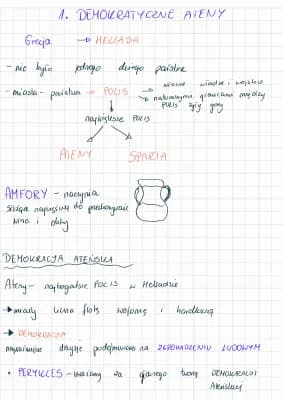 1. DEMOKRATYCZNE ATENY
Grecja → HELLADA
- nie było jednego dużego państwa
- miasta - państwa → POLIS → własne władze i wojsko
→ naturalnymi granicami między
POLIS były góry
największe POLIS
ATENY SPARTA
AMFORY - naczynia
służące najczęściej do przechowywania
wina i oliwy
DEMOKRACJA ATEŃSKA
Ateny - najbogatsze POLIS w Helladzie
→ miały liczną flotę wojenną i handlową
→ DEMOKRACJA
najważniejsze decyzje podejmowano na ZGROMADZENIU LUDOWYM
• PERYKLES - uważany za głównego twórcę DEMOKRACJI
Ateńskiej